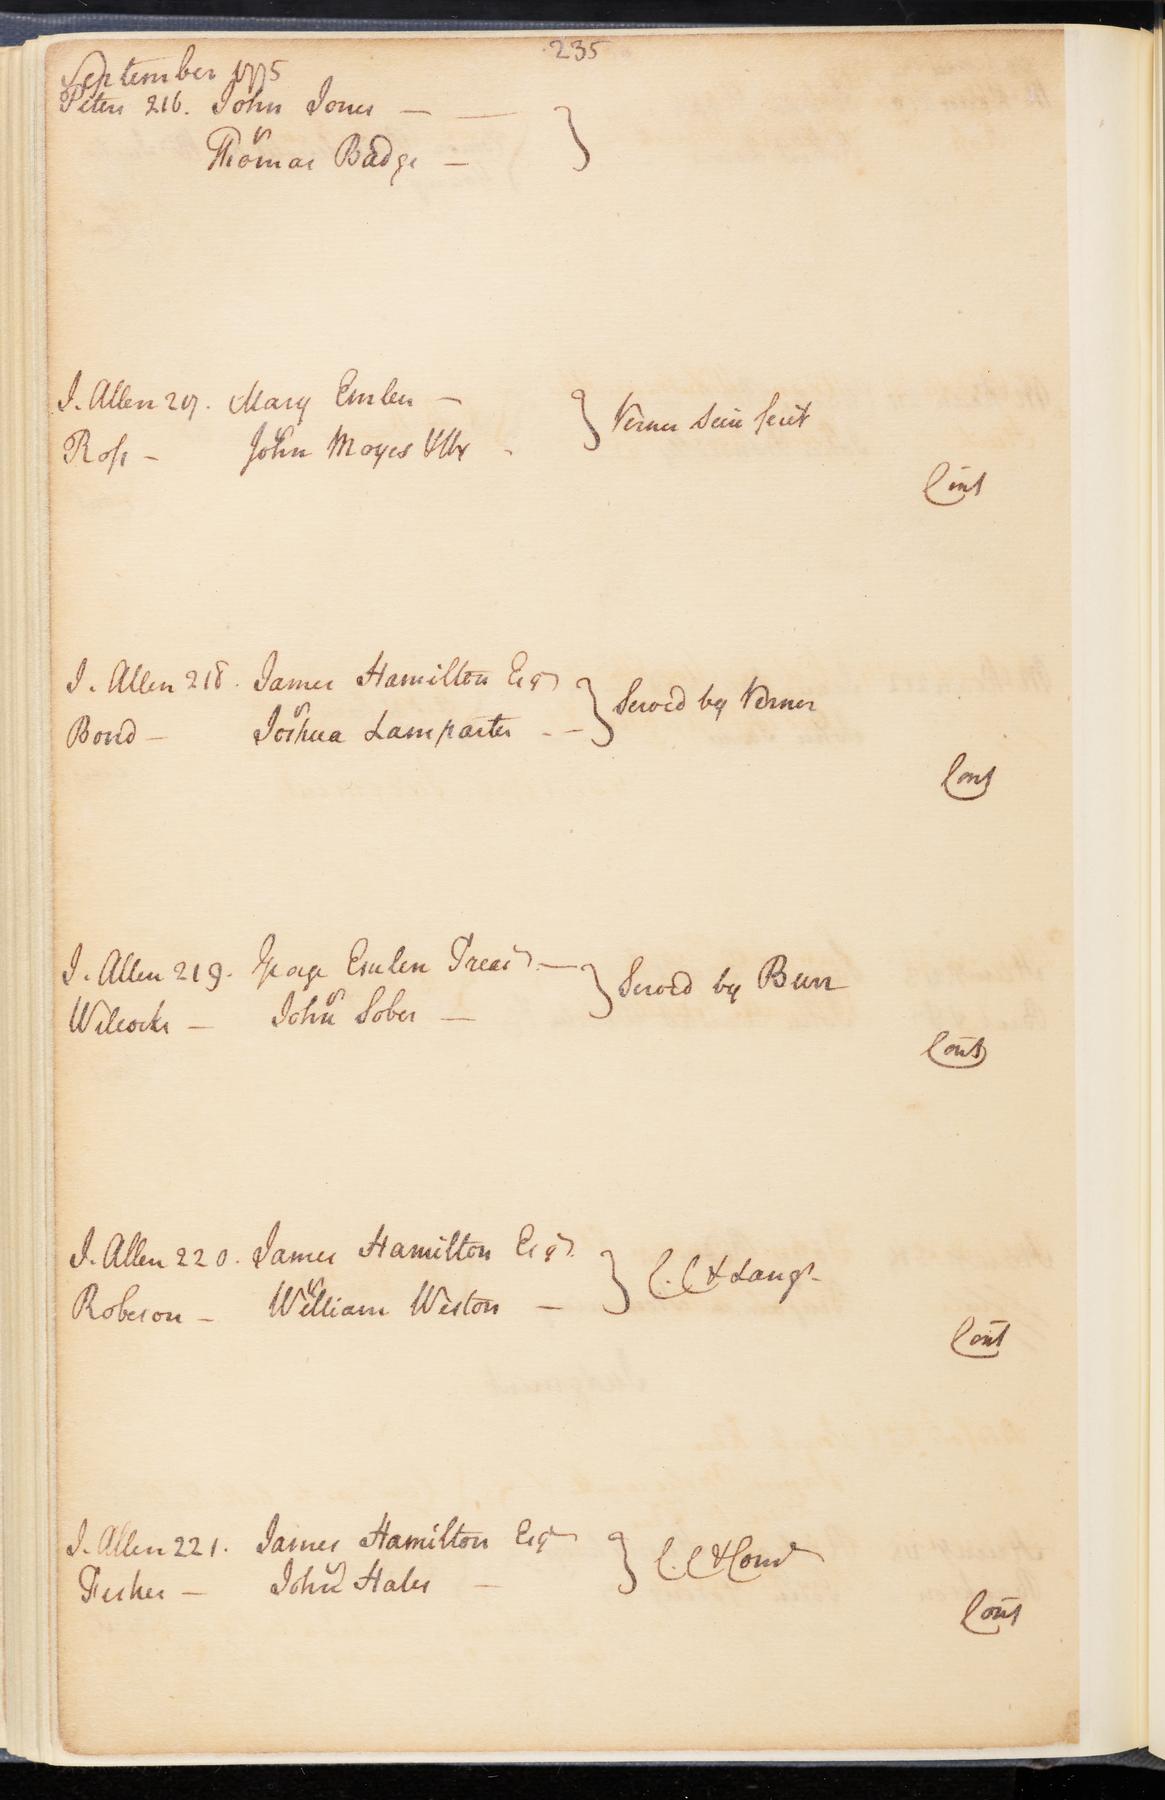 235
September 1775
Peters 216. John Jones —
vs
Thomas Badge —
J. Allen 217. Mary Emlen —
vs
Ross — John Moyes & Ux
Verner Scire feci't
Cont
J. Allen 218. James Hamilton Esqr
vs
Bond — Joshua Lamparter - -
Served by Verner
Cont
J. Allen 219. George Emlen Treasr —
vs
Wilcocks — John Sober —
Served by Burr
Cont
J. Allen 220. James Hamilton Esqr.
vs
Roberson — William Weston —
C.C &
Cont
J. Allen 221. James Hamilton Esqr
vs
Fisher — John Hales —
C.C & Comd
Cont